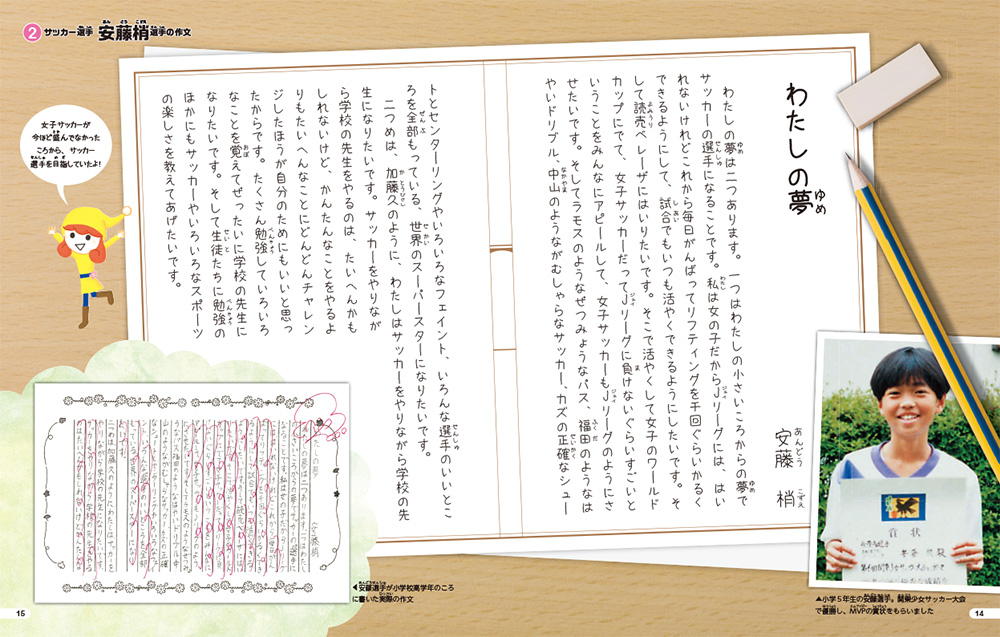 2 サッカー選手 安藤梢選手の作文
女子サッカーが
今ほど盛んでなかった
ころから、サッカー
選手を目指していたよ!
わたしの夢
安藤 梢
わたしの夢は二つあります。一つはわたしの小さいころからの夢で
サッカーの選手になることです。私は女の子だからJリーグには、はい
れないけれどこれから毎日がんばってリフティングを千回ぐらいかるく
できるようにして、試合でもいつも活やくできるようにしたいです。そ
して読売ベレーザにはいりたいです。そこで活やくして女子のワールド
カップにでて、女子サッカーだってJリーグに負けないぐらいすごいと
いうことをみんなにアピールして、女子サッカーもJリーグのようにさ
せたいです。そしてラモスのようなぜつみょうなパス、福田のようなは
やいドリブル、中山のようながむしゃらなサッカー、カズの正確なシュー
トとセンターリングやいろいろなフェイント、いろんな選手のいいとこ
ろを全部もっている、世界のスーパースターになりたいです。
二つめは、加藤久のように、わたしはサッカーをやりながら学校の先
生になりたいです。サッカーをやりなが
ら学校の先生をやるのは、たいへんかも
しれないけど、かんたんなことをやるよ
りもたいへんなことにどんどんチャレン
ジしたほうが自分のためにもいいと思っ
たからです。たくさん勉強していろいろ
なことを覚えてぜったいに学校の先生に
なりたいです。そして生徒たちに勉強の
ほかにもサッカーやいろいろなスポーツ
の楽しさを教えてあげたいです。
◀安藤選手が小学校高学年のころ
に書いた実際の作文
賞状
▲小学5年生の安藤選手。関東少女サッカー大会
で優勝し、MVPの賞状をもらいました
15
14